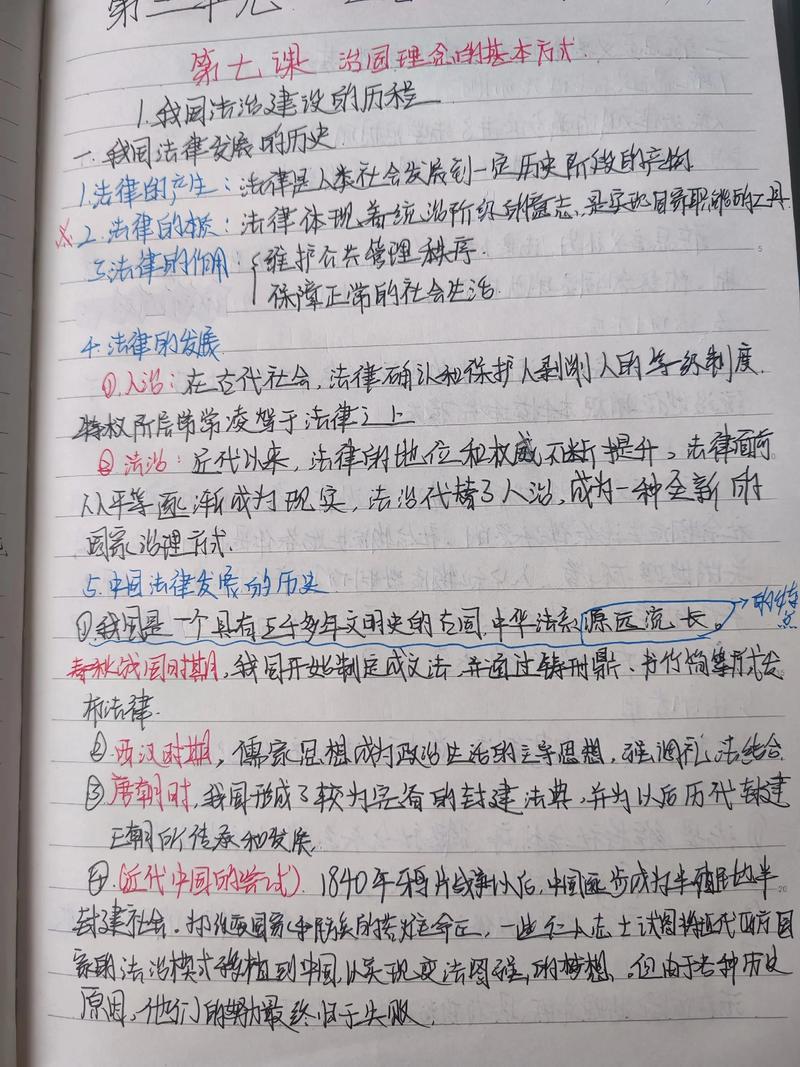 第三单元
第七课 治国理念的基本方式
1.我国法治建设的历程
一.我国法律发展的历史
1.法律的产生：法律是人类社会发展到一定历史阶段的产物
2.法律的本质：法律体现着统治阶级的意志，是实现国家职能的工具
3.法律的作用：{维护公共管理秩序
保障正常的社会生活
4.法律的发展
①人治：在古代社会，法律确认和保护人剥削人的等级制度.
特权阶层常常凌驾于法律之上
②法治：近代以来，法律的地位和权威不断提升，法律面前
人人平等逐渐成为现实，法治代替了人治，成为一种全新的
国家治理方式.
5.中国法律发展的历史
①我国是一个具有五千多年文明史的古国.中华法系源远流长。→的特点
春秋战国时期，我国开始制定成文法，并通过铸刑鼎、书竹简等形式公
布法律.
②西汉时期，儒家思想成为政治生活的主导思想，强调礼法结合.
③唐朝时，我国形成了较为完备的封建法典，并为以后历代封建
王朝所传承和发展.
④.(近代中国的尝试).1840年鸦片战争以后，中国逐步成为半殖民地半
封建社会.为改变国家和民族的苦难命运，一些仁人志士试图将近代西方国
家的法治模式移植到中国，以实现变法图强的梦想。但由于各种历史
原因，他们的努力最终归于失败.